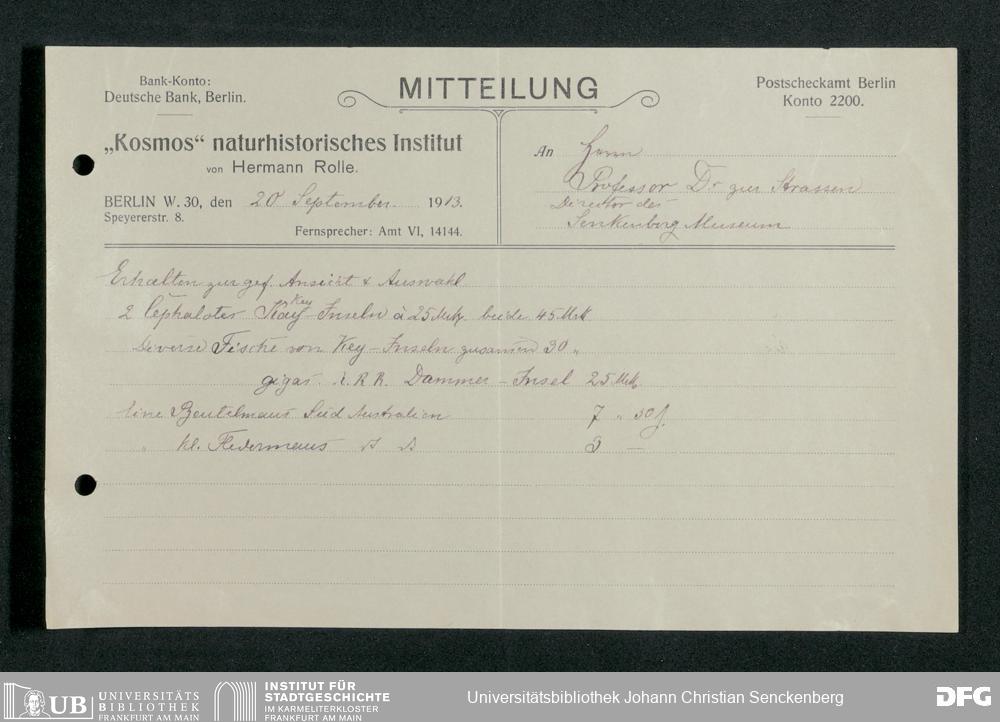 Bank-Konto:
Deutsche Bank, Berlin.
MITTEILUNG
Postscheckamt Berlin
Konto 2200.
„Kosmos“ naturhistorisches Institut
von Hermann Rolle.
BERLIN W. 30, den 20 September 1913.
Speyererstr. 8.
Fernsprecher: Amt VI, 14144.
An Herrn
Professor Dr zur Strassen
Director des
Senkenberg Museum
Erhalten zur gef. Ansicht & Auswahl
2 Cephalotes Key Inseln à 25 Mrk. beide 45 Mrk
Diverse Fische von Key - Inseln zusammen 30 "
gigas Dammer - Insel 25 Mrk.
Eine Beutelmaus Süd Australien 7 " 50 f.
" kl. Fledermaus 3 —
UB UNIVERSITÄTS
BIBLIOTHEK
FRANKFURT AM MAIN
INSTITUT FÜR
STADTGESCHICHTE
IM KARMELITERKLOSTER
FRANKFURT AM MAIN
Universitätsbibliothek Johann Christian Senckenberg
DFG